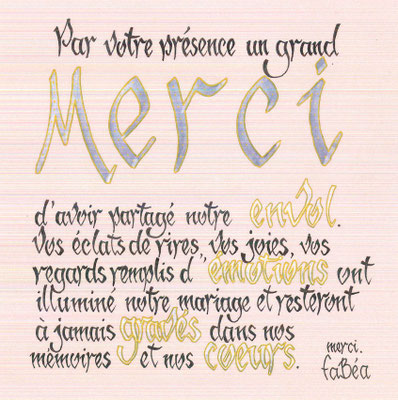 Par votre présence un grand
Merci
d'avoir partagé notre envol.
Vos éclats de rires, vos joies, vos
regards remplis d'émotions ont
illuminé notre mariage et resteront
à jamais gravés dans nos
mémoires et nos coeurs.
merci.
faBéa